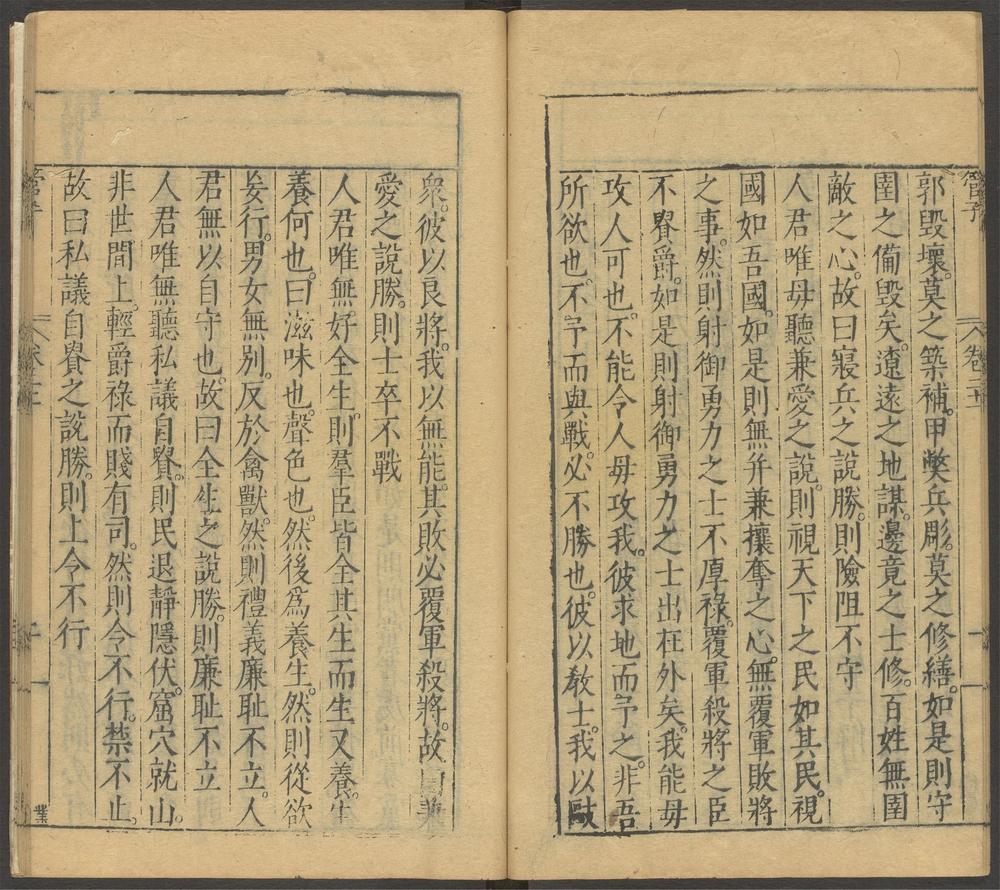 管子 卷二十一 十一
郭毀壞。莫之築補。甲獘兵彫。莫之修繕。如是則守
圉之備毀矣。遼遠之地謀。邊竟之士修。百姓無圉
敵之心。故曰寢兵之說勝。則險阻不守
人君唯毋聽兼愛之說。則視天下之民如其民。視
國如吾國。如是則無并兼攘奪之心。無覆軍敗將
之事。然則射御勇力之士不厚祿。覆軍殺將之臣
不貴爵。如是則射御勇力之士出在外矣。我能毋
攻人可也。不能令人毋攻我。彼求地而予之。非吾
所欲也。不予而與戰。必不勝也。彼以敎士。我以敺
衆。彼以良將。我以無能。其敗必覆軍殺將。故曰兼
愛之說勝。則士卒不戰
人君唯無好全生。則羣臣皆全其生而生又養。生
養何也。曰滋味也。聲色也。然後爲養生。然則從欲
妄行。男女無別。反於禽獸。然則禮義廉耻不立。人
君無以自守也。故曰全生之說勝。則廉耻不立
人君唯無聽私議自貴。則民退靜隱伏。窟穴就山。
非世間上。輕爵祿而賤有司。然則令不行。禁不止。
故曰私議自貴之說勝。則上令不行
管子 卷二十一 十一
業